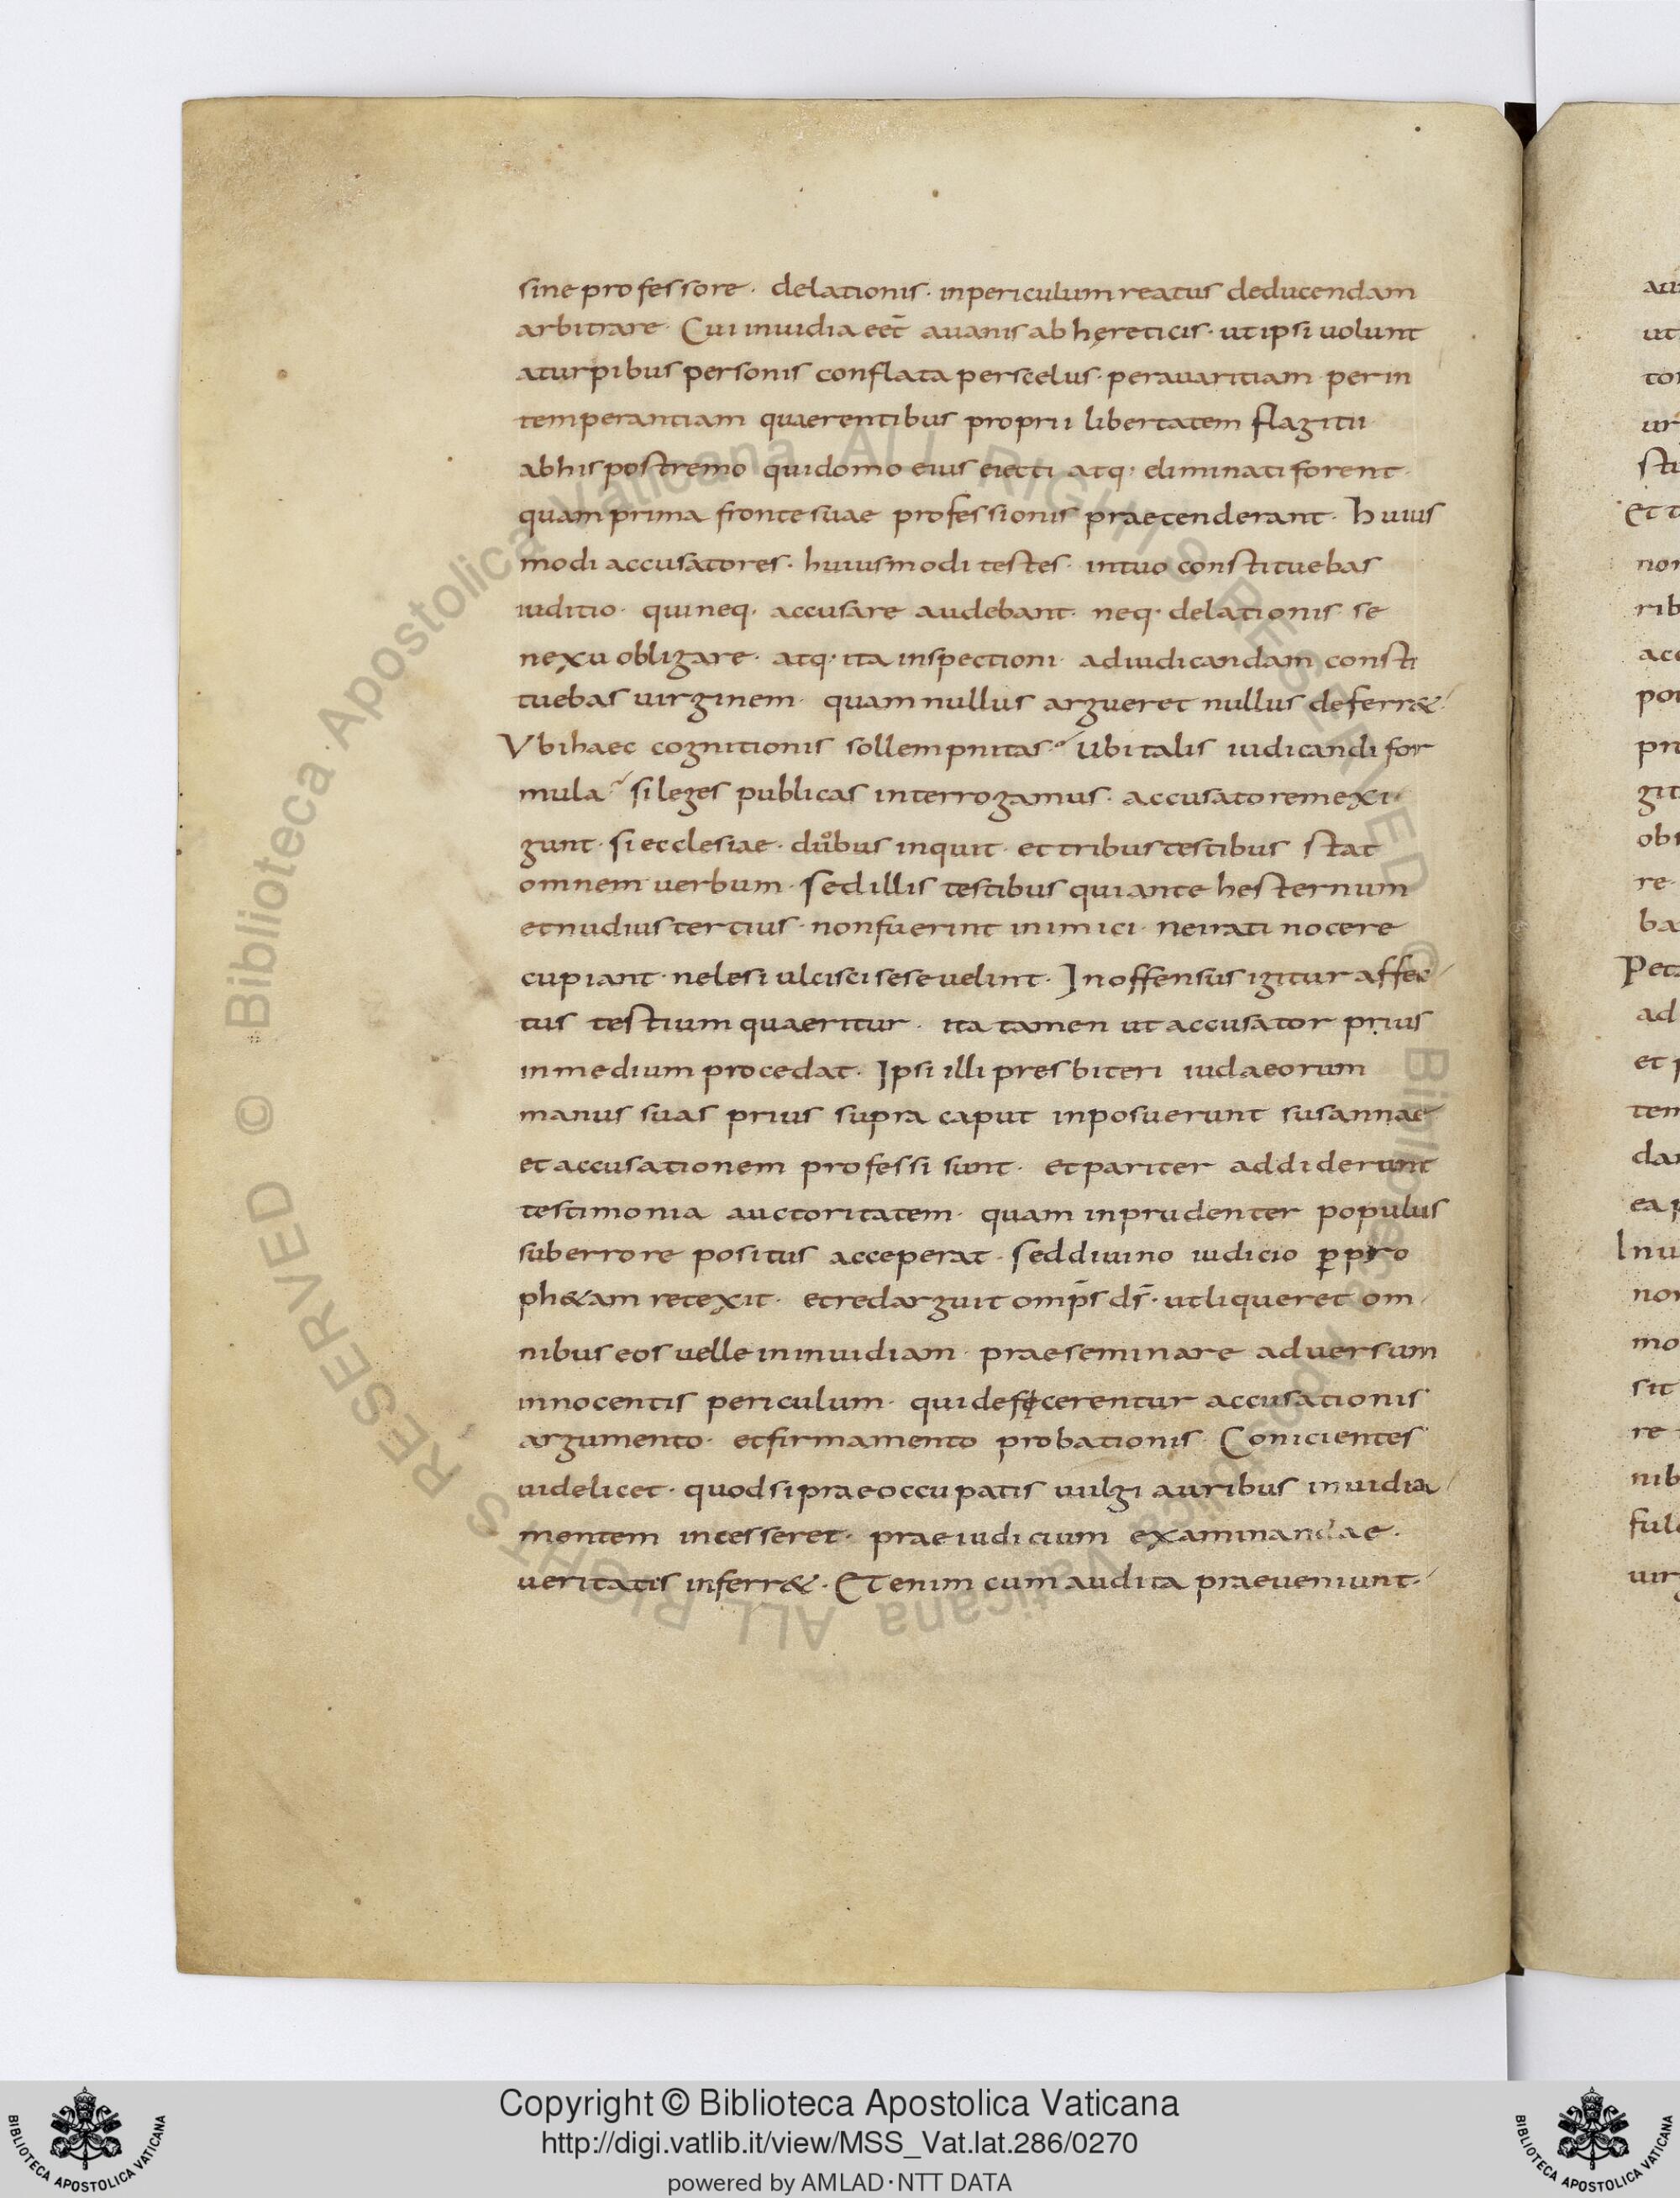 sine professore · delationis · inpericulum reatus deducendam
arbitrare · Cui inuidia eet̄ auanis ab hęreticis · ut ipsi uolunt
aturpibus personis conflata perscelus · perauaritiam · perin
temperantiam quaerentibus proprii libertatem flagitii ·
abhis postremo quidomo eius eiecti atq; eliminati forent ·
quam prima fronte suae professionis praetenderant · huius
modi accusatores · huiusmodi testes · intuo constituebas
iuditio · qui neq · accusare audebant · neq · delationis se
nexu obligare · atq · ita inspectioni adiudicandam consti
tuebas uirginem · quam nullus argueret nullus deferr&
Vbi haec cognitionis sollempnitas? Ubi talis iudicandi for
mula? si leges publicas interrogamus · accusatorem exi
gunt · si ecclesiae · duobus inquit · et tribus testibus stat
omnem uerbum · sed illis testibus qui ante hesternum
et nudius tertius · non fuerint inimici · ne irati nocere
cupiant · ne lesi ulcisci sese uelint · Inoffensus igitur affec
tus testium quaeritur · ita tamen ut accusator prius
inmedium procedat · Ipsi illi presbiteri iudaeorum
manus suas prius supra caput inposuerunt susannae
et accusationem professi sunt · et pariter addiderunt
testimonia auctoritatem · quam inprudenter populus
sub errore positus acceperat · sed diuino iudicio p̱ pro
ph&am retexit · et redarguit omp̄s ds̄ · ut liqueret om
nibus eos uelle ininuidiam praeseminare aduersum
innocentis periculum · qui defęcerentur accusationis
argumento · et firmamento probationis · Conicientes
uidelicet · quod si praeoccupatis uulgi auribus inuidia
montem incesseret · praeiudicium examinandae ·
ueritatis inferr& · Et enim cum audita praeueniunt ·
© Biblioteca Apostolica Vaticana ALL RIGHTS RESERVED
© Biblioteca Apostolica Vaticana ALL RIGHTS RESERVED
Copyright © Biblioteca Apostolica Vaticana
http://digi.vatlib.it/view/MSS_Vat.lat.286/0270
powered by AMLAD·NTT DATA
BIBLIOTECA APOSTOLICA VATICANA
BIBLIOTECA APOSTOLICA VATICANA